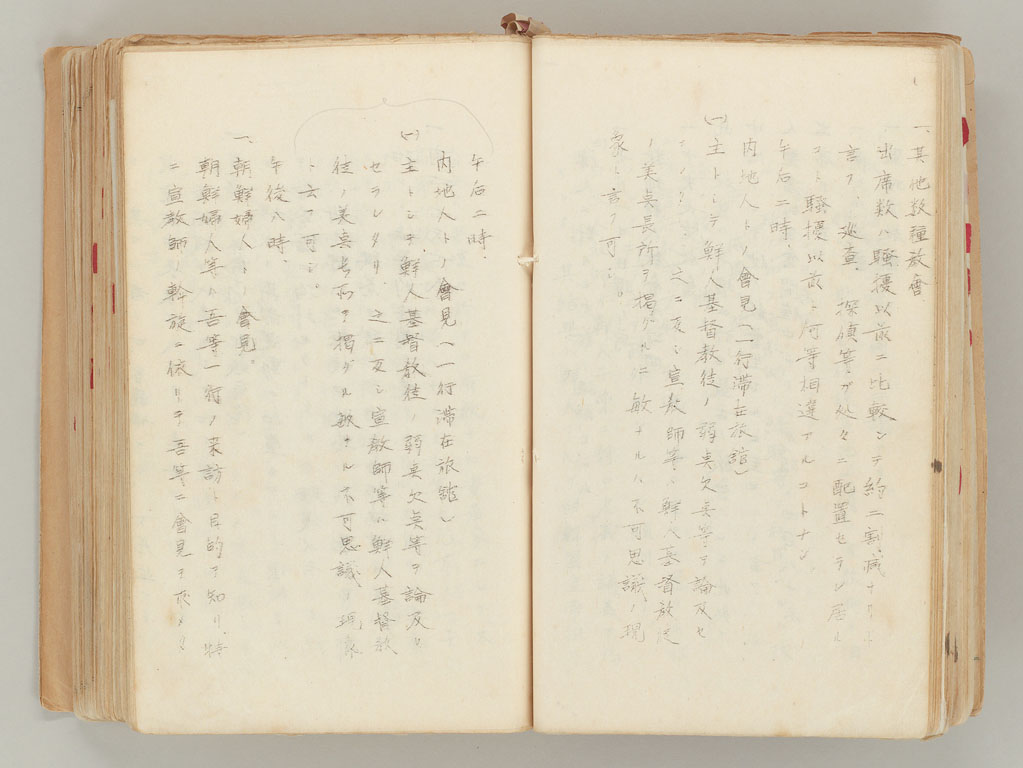 一、其他数種放會
出席数ハ騒擾以前ニ比較シテ約二割減ナリト
言フ、巡査、探偵等ガ処々ニ配置セラレ居ル
コト騒擾以前ト何等相違アルコトナシ
午后二時、
内地人トノ會見（一行滞在旅舘）
(一)主トシテ鮮人基督教徒ノ弱点欠点等ヲ論及セ
之ニ反シ宣教師等ハ鮮人基督教徒
ノ美点長所ヲ掲グルニ敏ナルハ不可思議ノ現
象ト言フ可シ。
午后二時、
内地人トノ會見（一行滞在旅舘）
(一)主トシテ、鮮人基督教徒ノ弱点欠点等ヲ論及
セラレタリ、之ニ反シ宣教師等ハ鮮人基督教
徒ノ美点長所ヲ掲グル敏ナル不可思議ノ現象
ト云フ可シ。
午後八時、
一、朝鮮婦人トノ會見。
朝鮮婦人等ハ吾等一行ノ来訪ト目的ヲ知リ、特
ニ宣教師ノ幹旋ニ依リテ吾等ニ會見ヲ